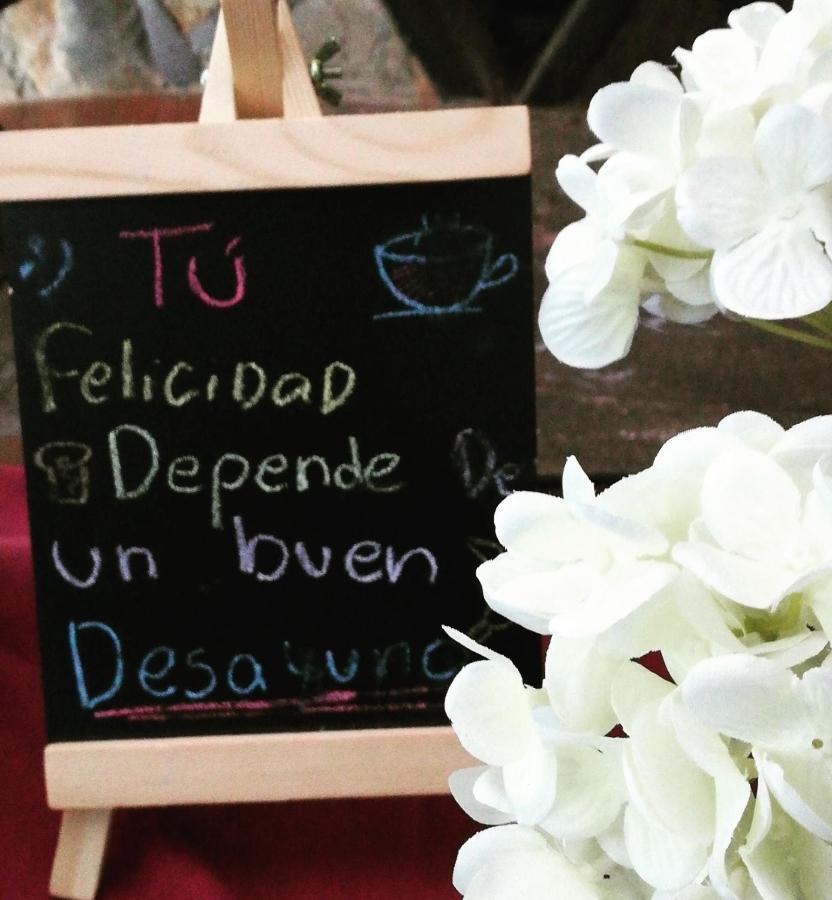 :)   Tú
Felicidad
Depende De
un buen
Desayuno